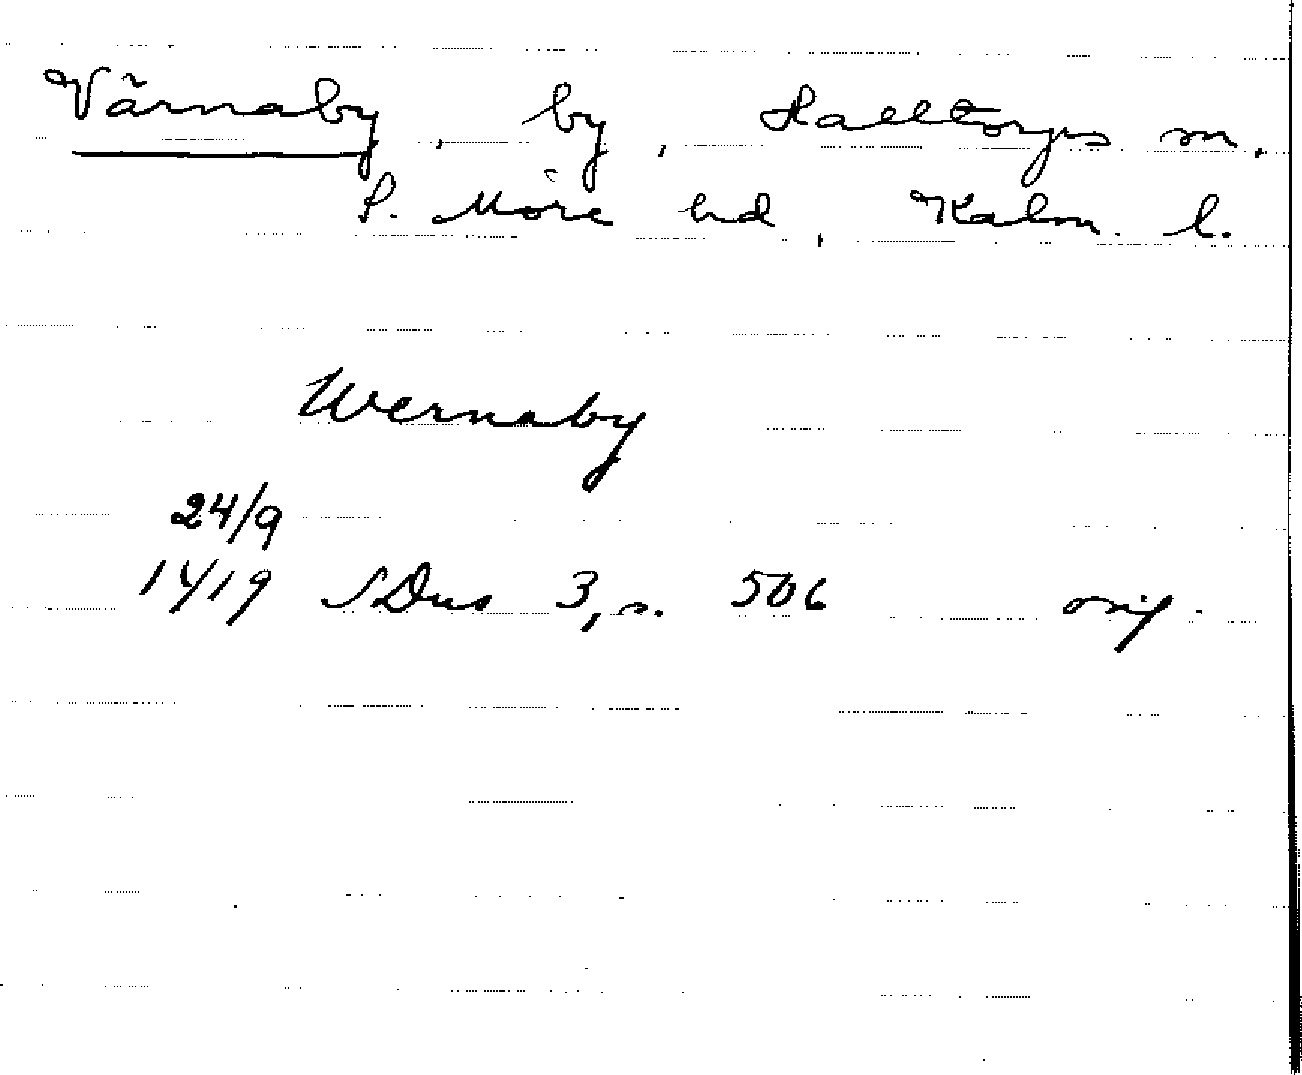 Värnaby, by, Halltorps sn.
S. Möre hd, Kalm. l.
Wernaby
24/9
1419 SDns 3, s. 506 orig.